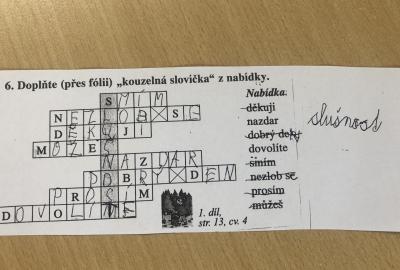 6. Doplňte (přes fólii) „kouzelná slovíčka" z nabídky.
SMÍM
NEZLOB SE
DĚKUJI
MŮŽEŠ
NAZDAR
DOBRÝ DEN
PROSÍM
DOVOLÍTE
Nabídka.
děkuji
nazdar
dobrý den
dovolíte
smím
nezlob se
prosím
můžeš
1. díl,
str. 13, cv. 4
slušnost